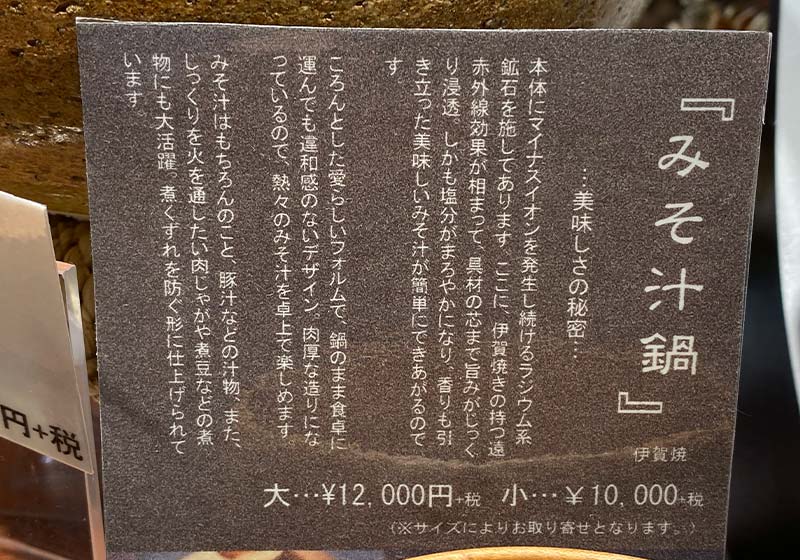 『みそ汁鍋』
伊賀焼
…美味しさの秘密…
本体にマイナスイオンを発生し続けるラジウム系
鉱石を施してあります。ここに、伊賀焼きの持つ遠
赤外線効果が相まって、具材の芯まで旨みがじっく
り浸透。しかも塩分がまろやかになり、香りも引
き立った美味しいみそ汁が簡単にできあがるので
す
ころんとした愛らしいフォルムで、鍋のまま食卓に
運んでも違和感のないデザイン。肉厚な造りにな
っているので、熱々のみそ汁を卓上で楽しめます
みそ汁はもちろんのこと、豚汁などの汁物、また、
じっくりを火を通したい肉じゃがや煮豆などの煮
物にも大活躍。煮くずれを防ぐ形に仕上げられて
います。
大…¥12,000円+税 小…¥10,000+税
(※サイズによりお取り寄せとなります。)
円+税